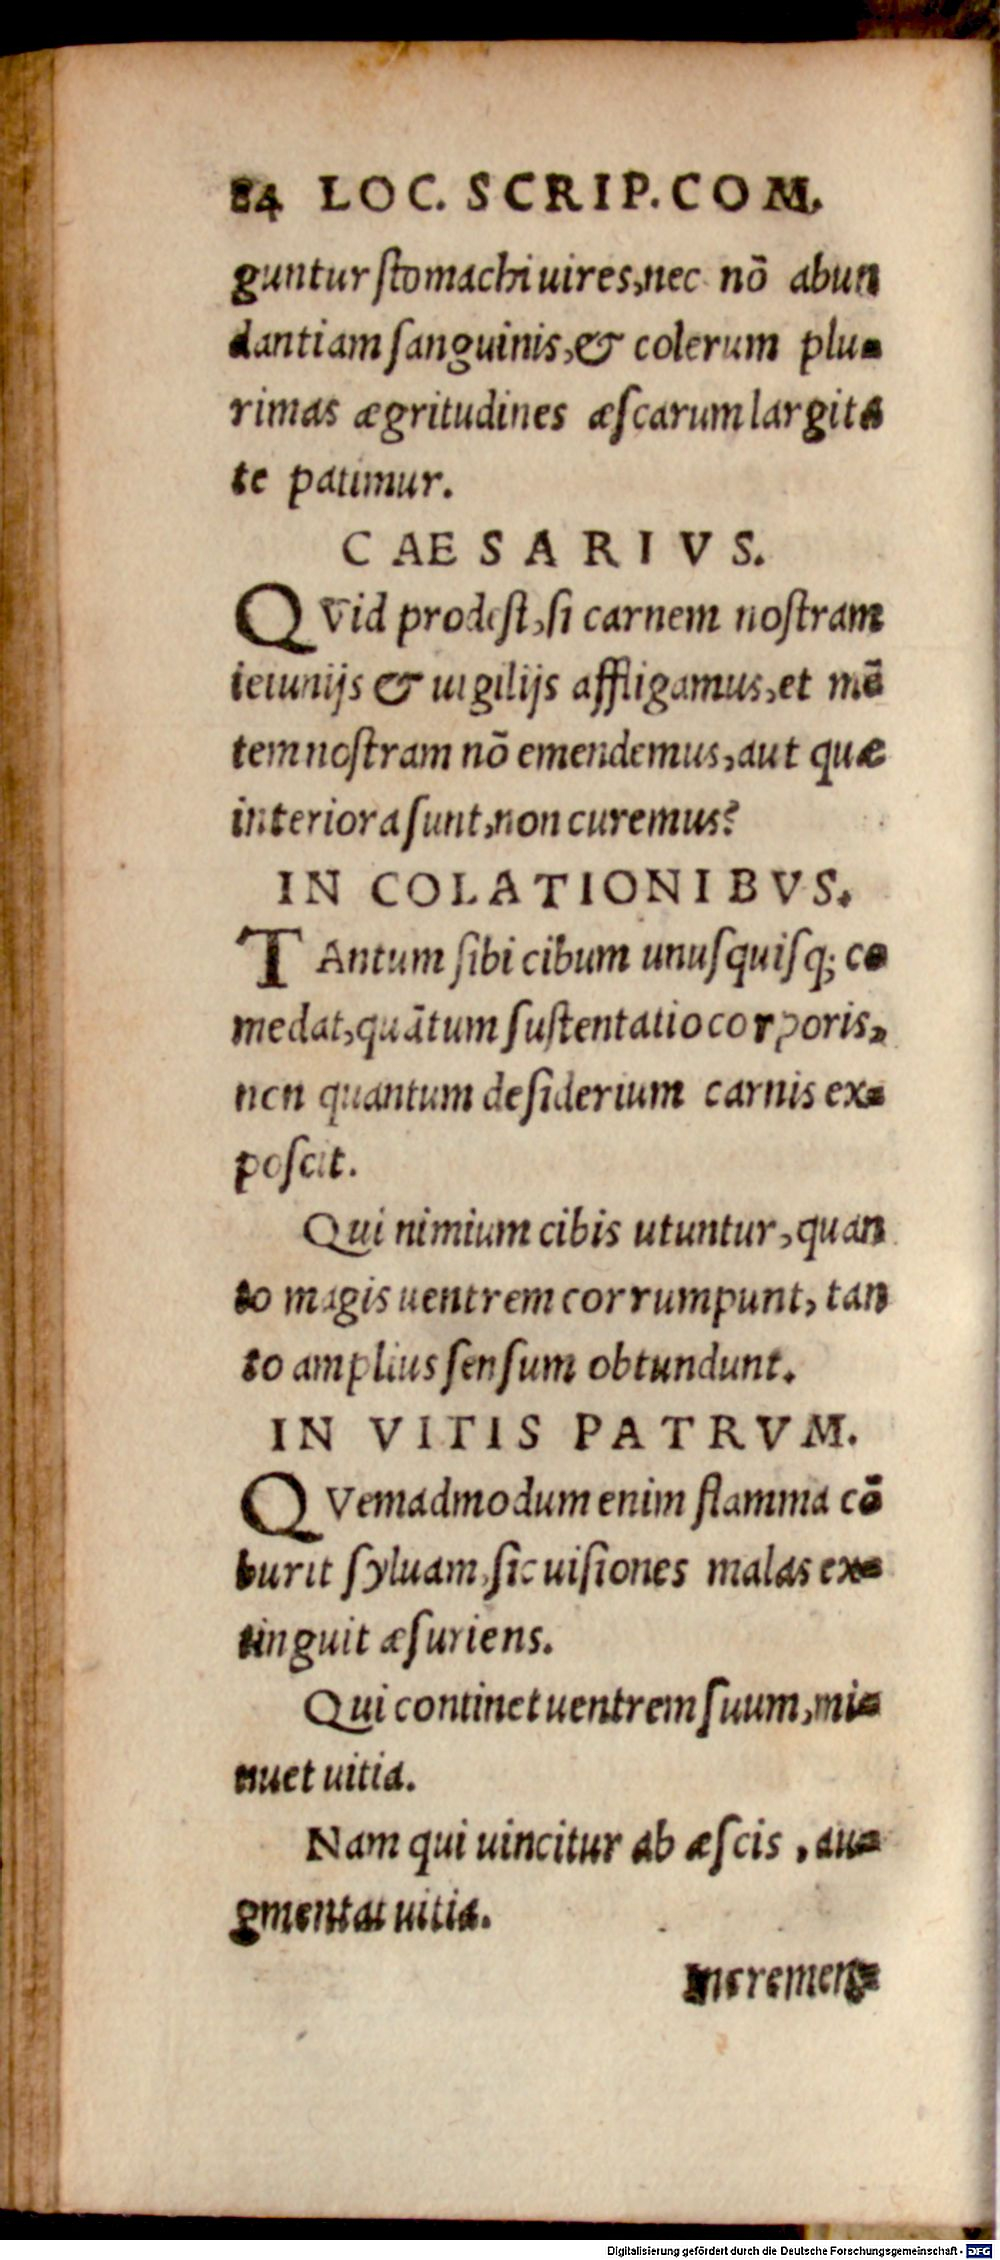 84 LOC. SCRIP. COM.
guntur ſtomachi uires, nec nō abun
dantiam ſanguinis, & colerum plu-
rimas ægritudines æſcarum largita
te patimur.
CAESARIVS.
QVid prodeſt, ſi carnem noſtram
ieiunijs & uigilijs affligamus, et mē
tem noſtram nō emendemus, aut quæ
interiora ſunt, non curemus?
IN COLATIONIBVS.
TAntum ſibi cibum unuſquiſq; co
medat, quātum ſuſtentatio corporis,
non quantum deſiderium carnis ex-
poſcit.
Qui nimium cibis utuntur, quan
to magis uentrem corrumpunt, tan
to amplius ſenſum obtundunt.
IN VITIS PATRVM.
QVemadmodum enim flamma cō
burit ſyluam, ſic uiſiones malas ex-
tinguit æſuriens.
Qui continet uentrem ſuum, mi-
nuet uitia.
Nam qui uincitur ab æſcis, au-
gmentat uitia.
incremen-
Digitalisierung gefördert durch die Deutsche Forschungsgemeinschaft - DFG